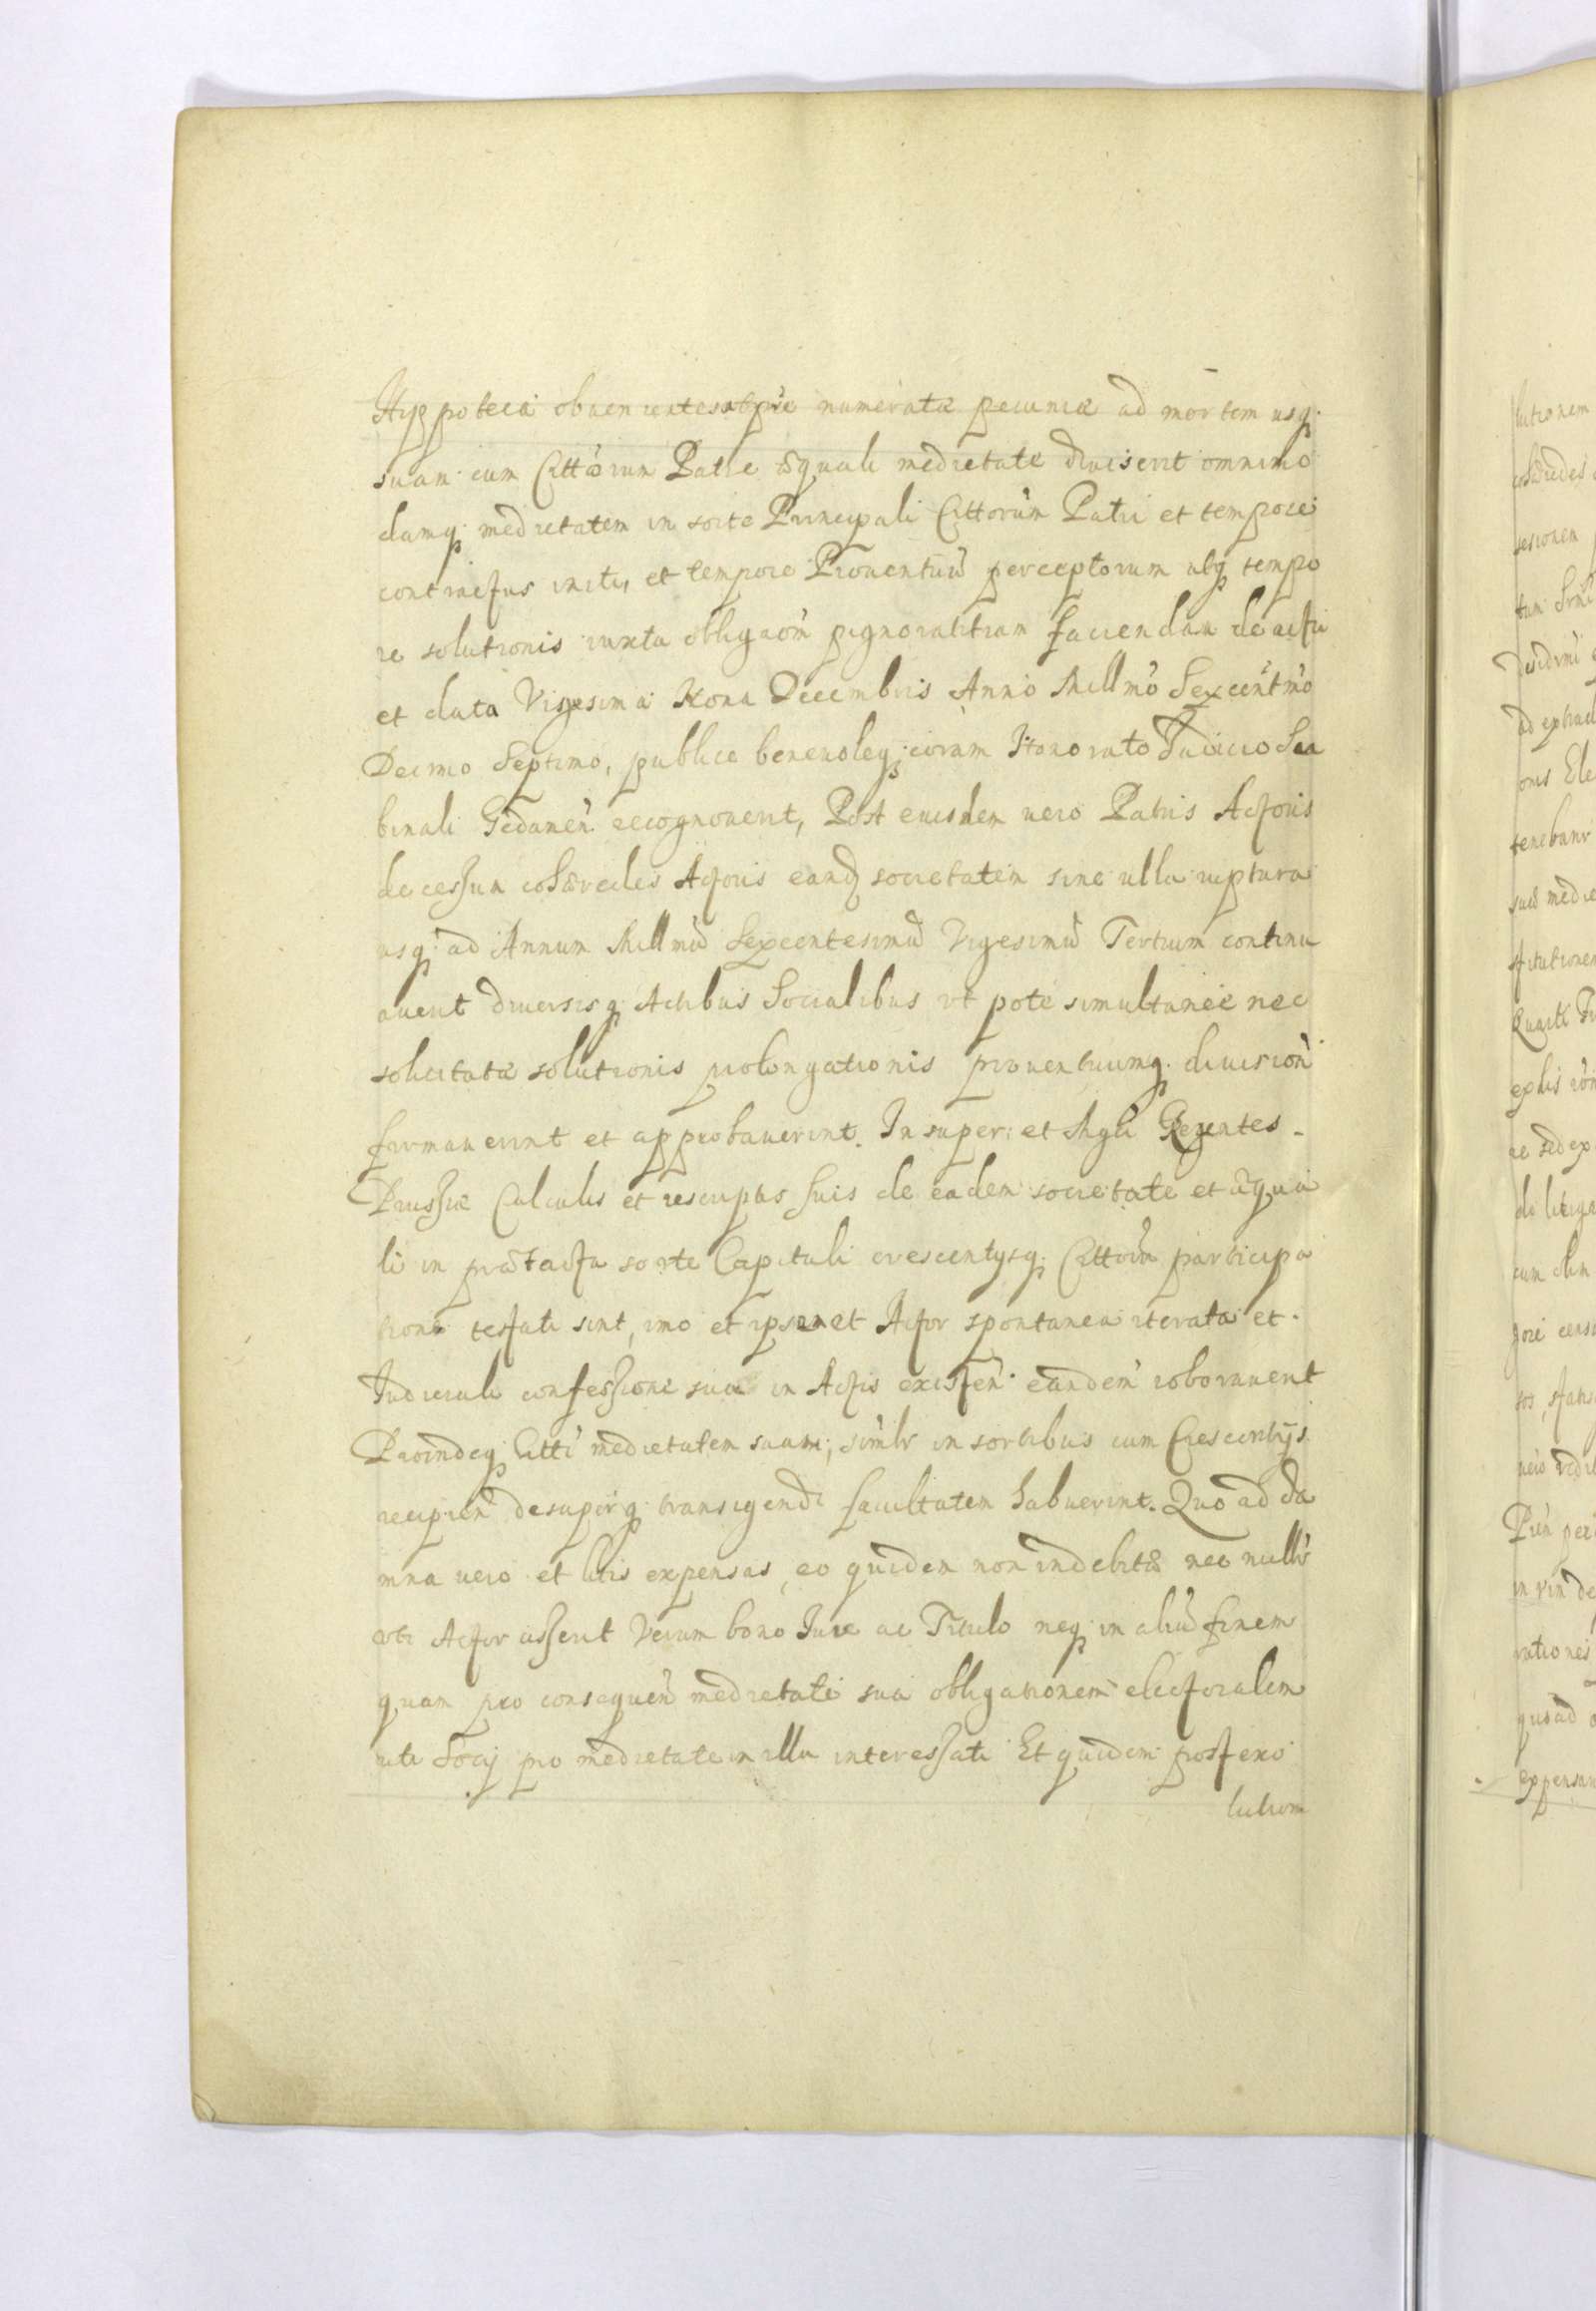 Hyppoteca obuenientes atq numeratæ pecuniæ ad mortem usq
suam cum Cittorum Patre æquali medietate diuiserit omnimo
damq medietatem in sorte Principali Cittorum Patri et tempore
contractus initi, et tempore Prouentuũ perceptorum utq tempo
re solutionis iuxta obligaõm pignoratitiam faciendam de actu
et data Vigesima Nona Decembris Anno Millmõ Sexcentmõ
Decimo Septimo, publice beneuoleq coram Honorato Iudicio Sca
binali Gedanen recognouerit, Post eiusdem uero Patris Actoris
decessum cohæredes Actoris eand societatem sine ulla ruptura
usq ad Annum Millmũ Sexcentesimũ Vigesimũ Tertium continu
auerit diuersisq Actibus Socialibus vt pote simultaneæ nec
solicitatæ solutionis prolongationis prouentuumq diuision
firmauerint et approbauerint. Insuper et Mgli Regentes
Prussiæ Calculis et rescriptis suis de eadem societate et æqua
li in prætacta sorte Capitali crescentysq Cittorũ participa
tione testati sint, imo et ipsemet Actor spontanea iterata et
Iudiciali confessione sua in Actis existen eandem roborauerit
Proindeq Citti medietatem suam, simlr in sortibus cum Crescentijs
recipien desuperq transigendi facultatem habuerint. Quo ad da
mna uero et litis expensas, eo quidem non indebitæ nec nullr
vti Actor asserit Verum bono Iure ac Titulo neq in aliũ finem
quam pro consequen medietate sua obligationem electoralem
uti Socij pro medietate in illa interessati Et quidem post exo
lutiom